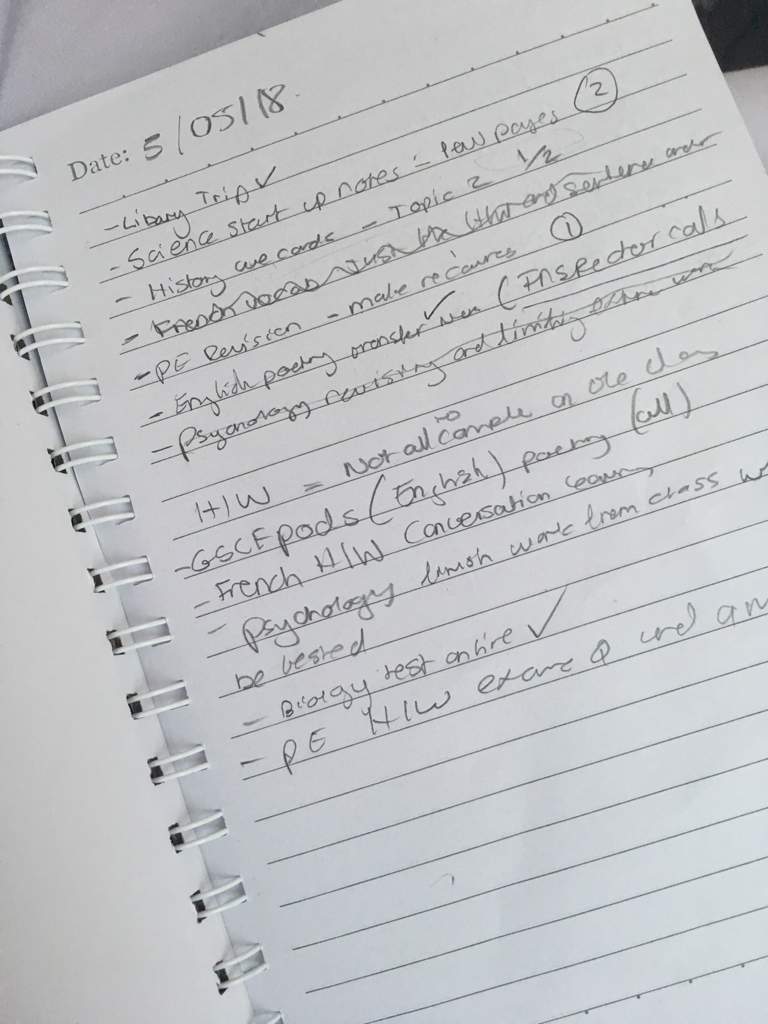 Date: 5/05/18.
- Libary Trip ✓
- Science start up notes = few pages ②
- History cue cards - Topic 2 1/2
- French vocab Just sentence order
- PE Revision - make recources ①
- English poetry ✓ (Inspector calls
- Psychology revising and
H/W = Not all to comple on one day
- GSCEpods (English) poetry (all)
- French H/W Conversation
- Psychology finish work from class
be tested
- Biology test online ✓
- PE H/W exam Q and an